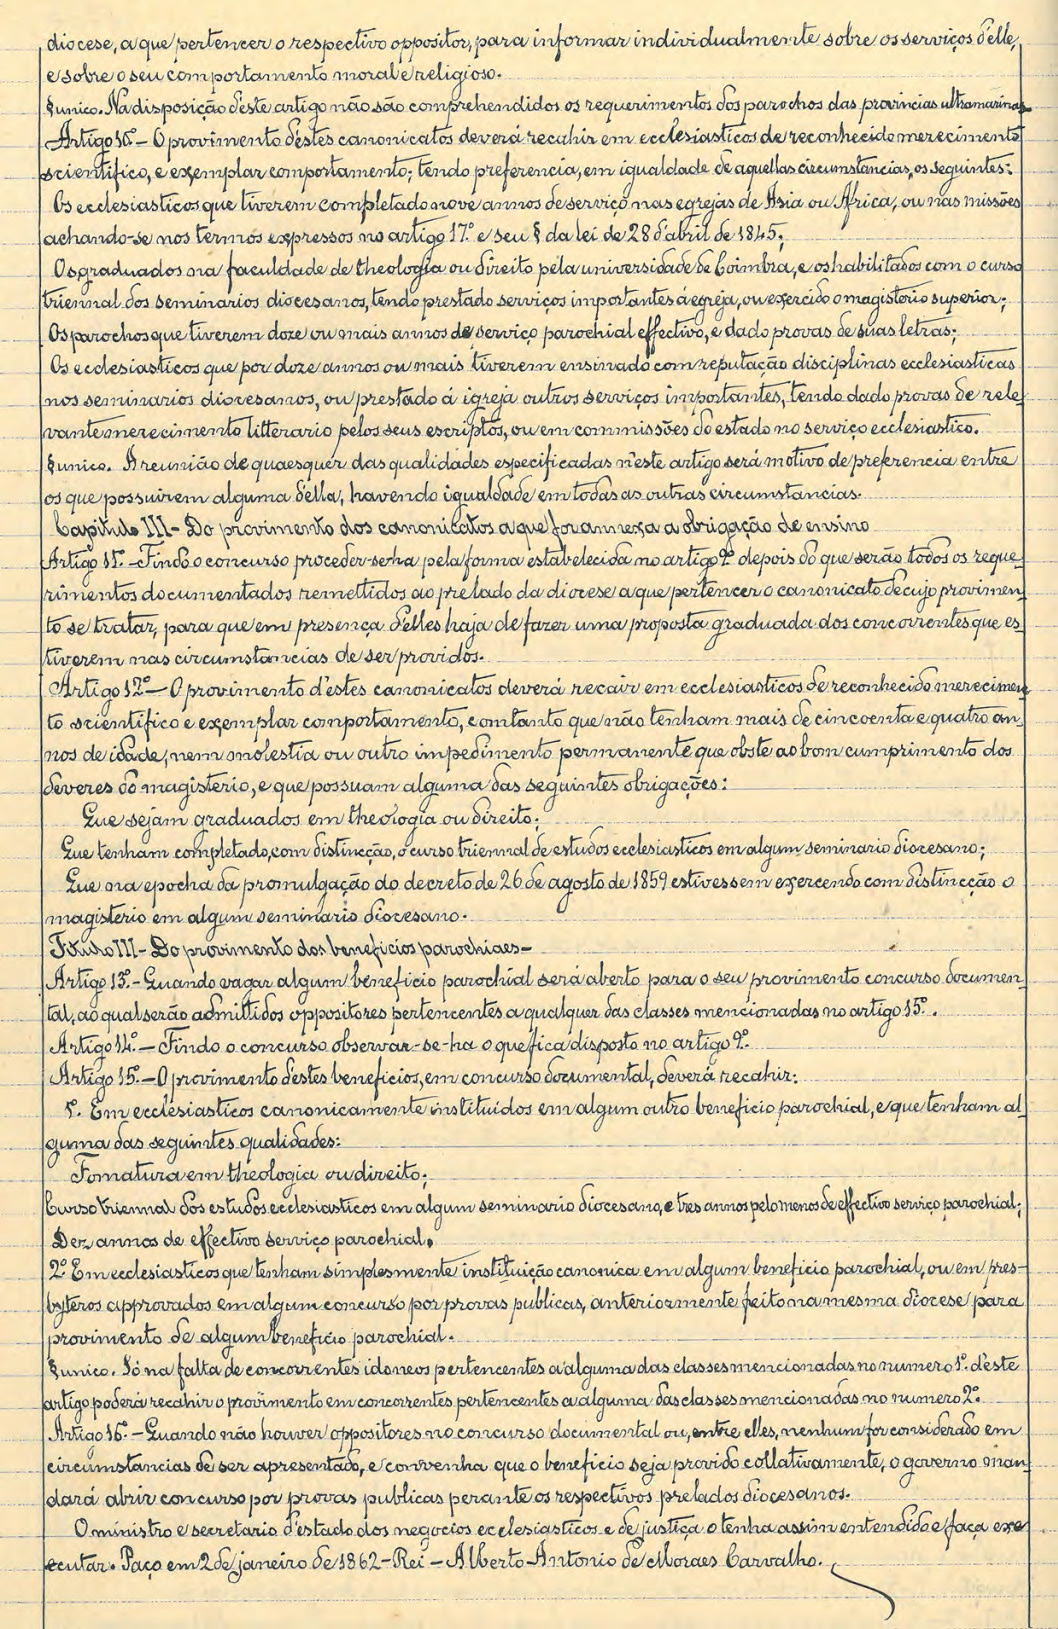 diocese, a que pertencer o respectivo oppositor, para informar individualmente sobre os serviços d'elle,
e sobre o seu comportamento moral e religioso.
§ unico. Na disposição d'este artigo não são comprehendidos os requerimentos dos parochos das provincias ultramarinas
Artigo 10º - O provimento d'estes canonicatos deverá recahir em ecclesiasticos de reconhecido merecimento
scientifico, e exemplar comportamento; tendo preferencia, em igualdade de aquellas circumstancias, os seguintes:
Os ecclesiasticos que tiverem completado nove annos de serviço nas egrejas de Asia ou Africa, ou nas missões
achando-se nos termos expressos no artigo 17º e seu § da lei de 28 d'abril de 1845;
Os graduados na faculdade de theologia ou direito pela universidade de Coimbra, e os habilitados com o curso
triennal dos seminarios diocesanos, tendo prestado serviços importantes á egreja, ou exercido o magisterio superior;
Os parochos que tiverem doze ou mais annos de serviço parochial effectivo, e dado provas de suas letras;
Os ecclesiasticos que por doze annos ou mais tiverem ensinado com reputação disciplinas ecclesiasticas
nos seminarios diocesanos, ou prestado á igreja outros serviços importantes, tendo dado provas de rele-
vante merecimento litterario pelos seus escriptos, ou em commissões do estado no serviço ecclesiastico.
§ unico. A reunião de quaesquer das qualidades especificadas n'este artigo será motivo de preferencia entre
os que possuirem alguma d'ella, havendo igualdade em todas as outras circumstancias.
Capitulo III - Do provimento dos canonicatos a que for annexa a obrigação de ensino
Artigo 11º - Findo o concurso proceder-se-ha pela forma estabelecida no artigo 9º depois do que serão todos os reque-
rimentos documentados remettidos ao prelado da diocese a que pertencer o canonicato de cujo provimen-
to se tratar, para que em presença d'elles haja de fazer uma proposta graduada dos concorrentes que es-
tiverem nas circumstancias de ser providos.
Artigo 12º - O provimento d'estes canonicatos deverá recair em ecclesiasticos de reconhecido merecimen-
to scientifico e exemplar comportamento, comtanto que não tenham mais de cincoenta e quatro an-
nos de idade, nem molestia ou outro impedimento permanente que obste ao bom cumprimento dos
deveres do magisterio, e que possuam alguma das seguintes obrigações:
Que sejam graduados em theologia ou direito;
Que tenham completado, com distincção, o curso triennal de estudos ecclesiasticos em algum seminario diocesano;
Que na epocha da promulgação do decreto de 26 de agosto de 1859 estivessem exercendo com distincção o
magisterio em algum seminario diocesano.
Titulo III - Do provimento dos beneficios parochiaes -
Artigo 13º - Quando vagar algum beneficio parochial será aberto para o seu provimento concurso documen-
tal, ao qual serão admittidos oppositores pertencentes a qualquer das classes mencionadas no artigo 15º.
Artigo 14º - Findo o concurso observar-se-ha o que fica disposto no artigo 9º.
Artigo 15º - O provimento d'estes beneficios, em concurso documental, deverá recahir:
1º. Em ecclesiasticos canonicamente instituidos em algum outro beneficio parochial, e que tenham al-
guma das seguintes qualidades:
Fomatura em theologia ou direito;
Curso triennal dos estudos ecclesiasticos em algum seminario diocesano, e tres annos pelo menos de effectivo serviço parochial;
Dez annos de effectivo serviço parochial.
2º. Em ecclesiasticos que tenham simplesmente instituição canonica em algum beneficio parochial, ou em pres-
byteros approvados em algum concurso por provas publicas, anteriormente feito na mesma diocese para
provimento de algum beneficio parochial.
§ unico. Só na falta de concorrentes idoneos pertencentes a alguma das classes mencionadas no numero 1º. d'este
artigo poderá recahir o provimento em concorrentes pertencentes a alguma das classes mencionadas no numero 2º.
Artigo 16º - Quando não houver oppositores no concurso documental ou, entre elles, nenhum for considerado em
circumstancias de ser apresentado, e convenha que o beneficio seja provido collativamente, o governo man-
dará abrir concurso por provas publicas perante os respectivos prelados diocesanos.
O ministro e secretario d'estado dos negocios ecclesiasticos e de justiça o tenha assim entendido e faça exe-
ecutar. Paço em 2 de janeiro de 1862 - Rei - Alberto Antonio de Moraes Carvalho.